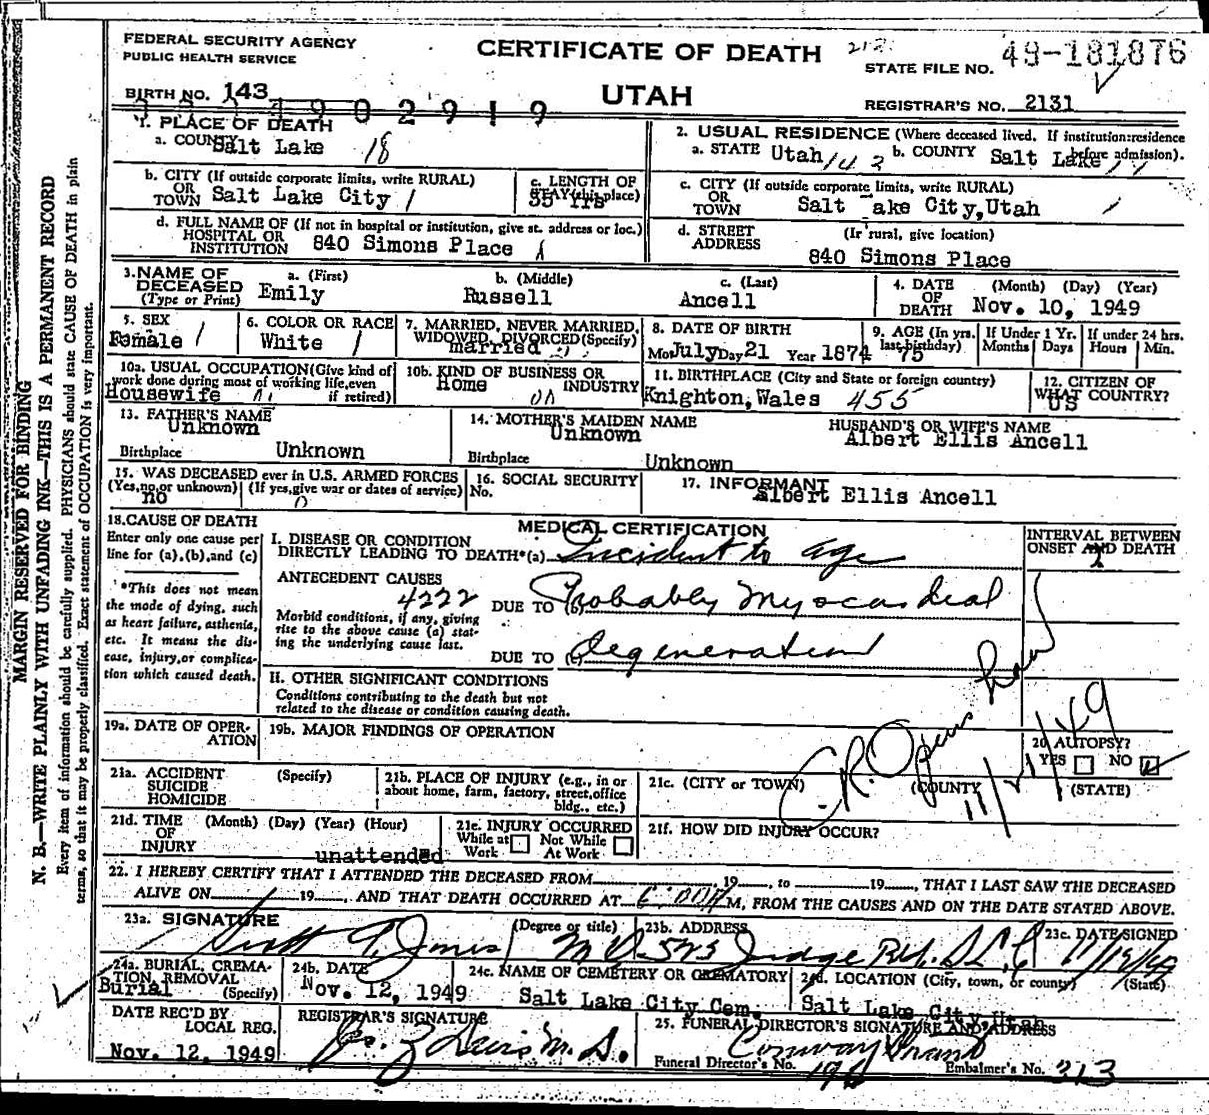 FEDERAL SECURITY AGENCY
PUBLIC HEALTH SERVICE
CERTIFICATE OF DEATH
STATE FILE NO. 49-181876
BIRTH NO. 143
UTAH
REGISTRAR'S NO. 2131
4902919
1. PLACE OF DEATH
a. COUNTY Salt Lake 18
2. USUAL RESIDENCE (Where deceased lived. If institution:residence before admission).
a. STATE Utah b. COUNTY Salt Lake
b. CITY (If outside corporate limits, write RURAL) OR TOWN Salt Lake City
c. LENGTH OF STAY (this place) 35 Yrs
c. CITY (If outside corporate limits, write RURAL) OR TOWN Salt ake City,Utah
d. FULL NAME OF (If not in hospital or institution, give st. address or loc.) HOSPITAL OR INSTITUTION 840 Simons Place
d. STREET ADDRESS (If rural, give location)
840 Simons Place
3. NAME OF DECEASED (Type or Print)
a. (First) Emily
b. (Middle) Russell
c. (Last) Ancell
4. DATE OF DEATH (Month) (Day) (Year)
Nov. 10, 1949
5. SEX Female
6. COLOR OR RACE White
7. MARRIED, NEVER MARRIED, WIDOWED, DIVORCED (Specify) married
8. DATE OF BIRTH
Mo. July Day 21 Year 1874
9. AGE (In yrs. last birthday) 75
If Under 1 Yr. Months Days
If under 24 hrs. Hours Min.
10a. USUAL OCCUPATION (Give kind of work done during most of working life, even if retired) Housewife
10b. KIND OF BUSINESS OR INDUSTRY Home
11. BIRTHPLACE (City and State or foreign country)
Knighton,Wales 455
12. CITIZEN OF WHAT COUNTRY? US
13. FATHER'S NAME
Unknown
Birthplace Unknown
14. MOTHER'S MAIDEN NAME
Unknown
Birthplace Unknown
HUSBAND'S OR WIFE'S NAME
Albert Ellis Ancell
15. WAS DECEASED ever in U.S. ARMED FORCES
(Yes,no,or unknown) (If yes,give war or dates of service)
no
16. SOCIAL SECURITY No.
17. INFORMANT
Albert Ellis Ancell
18. CAUSE OF DEATH
Enter only one cause per line for (a),(b),and (c)
*This does not mean the mode of dying, such as heart failure, asthenia, etc. It means the disease, injury,or complication which caused death.
MEDICAL CERTIFICATION
I. DISEASE OR CONDITION
DIRECTLY LEADING TO DEATH*(a) Incident to age
ANTECEDENT CAUSES
4222
Morbid conditions, if any, giving rise to the above cause (a) stating the underlying cause last.
DUE TO (b) Probably Myocardial
DUE TO (c) degeneration
INTERVAL BETWEEN ONSET AND DEATH
II. OTHER SIGNIFICANT CONDITIONS
Conditions contributing to the death but not related to the disease or condition causing death.
19a. DATE OF OPERATION
19b. MAJOR FINDINGS OF OPERATION
11/21/49
20. AUTOPSY?
YES NO
21a. ACCIDENT SUICIDE HOMICIDE (Specify)
21b. PLACE OF INJURY (e.g., in or about home, farm, factory, street,office bldg., etc.)
21c. (CITY or TOWN) (COUNTY) (STATE)
21d. TIME OF INJURY (Month) (Day) (Year) (Hour)
21e. INJURY OCCURRED
While at Work Not While At Work
21f. HOW DID INJURY OCCUR?
unattended
22. I HEREBY CERTIFY THAT I ATTENDED THE DECEASED FROM 19 , to 19 , THAT I LAST SAW THE DECEASED
ALIVE ON 19 , AND THAT DEATH OCCURRED AT 6:00 M, FROM THE CAUSES AND ON THE DATE STATED ABOVE.
23a. SIGNATURE (Degree or title) 23b. ADDRESS 23c. DATE SIGNED
MD. Judge Bld. S L C
24a. BURIAL, CREMATION, REMOVAL (Specify) Burial
24b. DATE
Nov. 12, 1949
24c. NAME OF CEMETERY OR CREMATORY
Salt Lake City Cem.
24d. LOCATION (City, town, or county) (State)
Salt Lake City,Utah
DATE REC'D BY LOCAL REG.
Nov. 12, 1949
REGISTRAR'S SIGNATURE
25. FUNERAL DIRECTOR'S SIGNATURE AND ADDRESS
Funeral Director's No. Embalmer's No. 313
MARGIN RESERVED FOR BINDING
N. B.—WRITE PLAINLY WITH UNFADING INK—THIS IS A PERMANENT RECORD
Every item of information should be carefully supplied. PHYSICIANS should state CAUSE OF DEATH in plain
terms, so that it may be properly classified. Exact statement of OCCUPATION is very important.